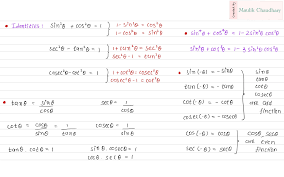 Manthk Chaudhary
• Identities : sin²θ + cos²θ = 1 } 1 - sin²θ = cos²θ
1 - cos²θ = sin²θ
sec²θ - tan²θ = 1 } 1 + tan²θ = sec²θ
sec²θ - 1 = tan²θ
cosec²θ - cot²θ = 1 } 1 + cot²θ = cosec²θ
cosec²θ - 1 = cot²θ
• tanθ = sinθ / cosθ
secθ = 1 / cosθ
cotθ = cosθ / sinθ = 1 / tanθ
cosecθ = 1 / sinθ
tanθ . cotθ = 1
sinθ cosecθ = 1
cosθ . secθ = 1
• sin⁴θ + cos⁴θ = 1 - 2 sin²θ cos²θ
sin⁶θ + cos⁶θ = 1 - 3 sin²θ cos²θ
• sin (-θ) = - sinθ
tan (-θ) = - tanθ
cot (-θ) = - cotθ
cosec (-θ) = - cosecθ
sinθ
tanθ
cotθ
cosecθ
are odd
function
cos (-θ) = cosθ
sec (-θ) = secθ
cosθ, secθ
are even
function